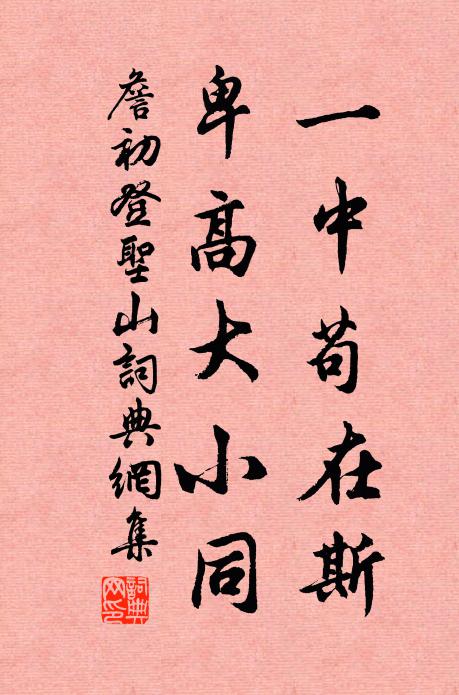 一中苟在斯
卑高大小同
詹初登聖山詞典網集
詞典網印